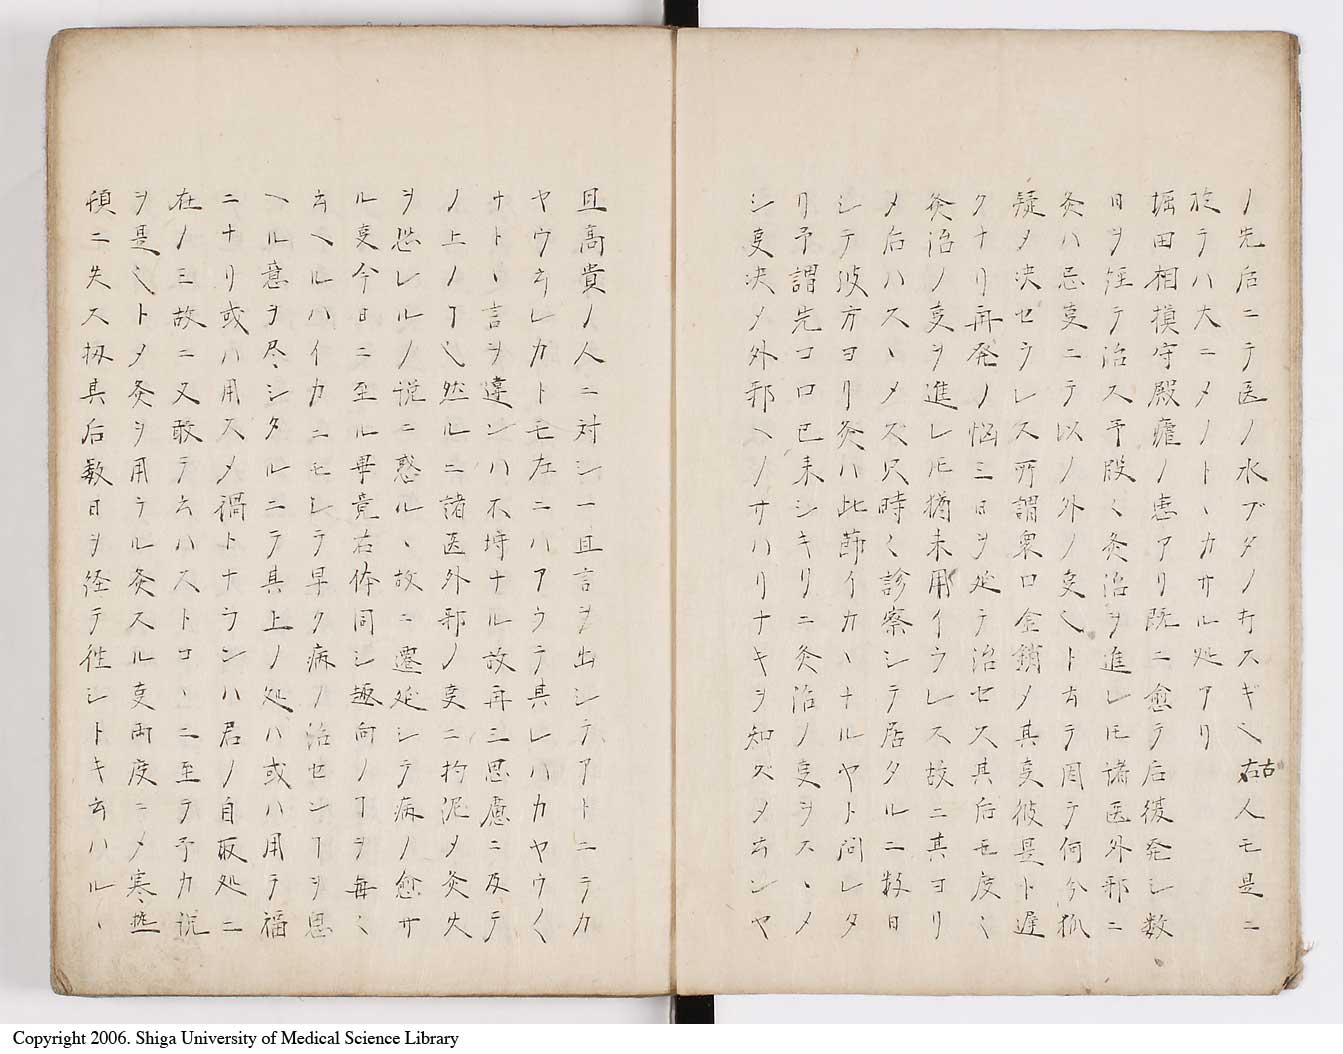 ノ先后ニテ医ノ水ブタノ打スギ乀古右人モ是ニ
於テハ大ニメノトヽカサル処アリ
堀田相模守殿瘧ノ患アリ既ニ愈テ后復発シ数
日ヲ経テ治ス予殷〱灸治ヲ進レ𪜈諸医外邪ニ
灸ハ忌叓ニテ以ノ外ノ叓乀ト云テ因テ何分狐
疑メ决セラレス所謂衆口金銷メ其叓彼是ト遅
クナリ再発ノ悩三日ヲ延テ治セス其后モ度〱
灸治ノ叓ヲ進レ𪜈猶未用イラレス故ニ其ヨリ
メ后ハスヽメズ只時〱診察シテ居タルニ数日
シテ彼方ヨリ灸ハ此節イカヽナルヤト問レタ
リ予謂先コロ已来シキリニ灸治ノ叓ヲスヽメ
シ叓决メ外邪ヘノサハリナキヲ知ズメ云ンヤ
且高貴ノ人ニ対シ一旦言ヲ出シテアトニテカ
ヤウ云レカトモ左ニハアラテ其レハカヤウ〱
ナトヽ言ヲ違ンハ不埒ナル故再三思慮ニ及テ
ノ上ノヿ乀然ルニ諸医外邪ノ叓ニ拘泥メ灸火
ヲ恐レルノ説ニ惑ルヽ故ニ遷延シテ病ノ愈サ
ル叓今日ニ至ル畢竟右体同シ趣向ノヿヲ毎〱
云ヘルハイカニモシテ早ク病ノ治センヿヲ思
ヘル意ヲ尽シタルニテ其上ノ処ハ或ハ用テ福
ニナリ或ハ用スメ禍トナランハ君ノ自取処ニ
在ノミ故ニ又敢テ云ハストコヽニ至テ予カ説
ヲ是乀トメ灸ヲ用ラル灸スル叓両度ニメ寒熱
頓ニ失ス扨其后数日ヲ経テ徃シトキ云ハルヽ